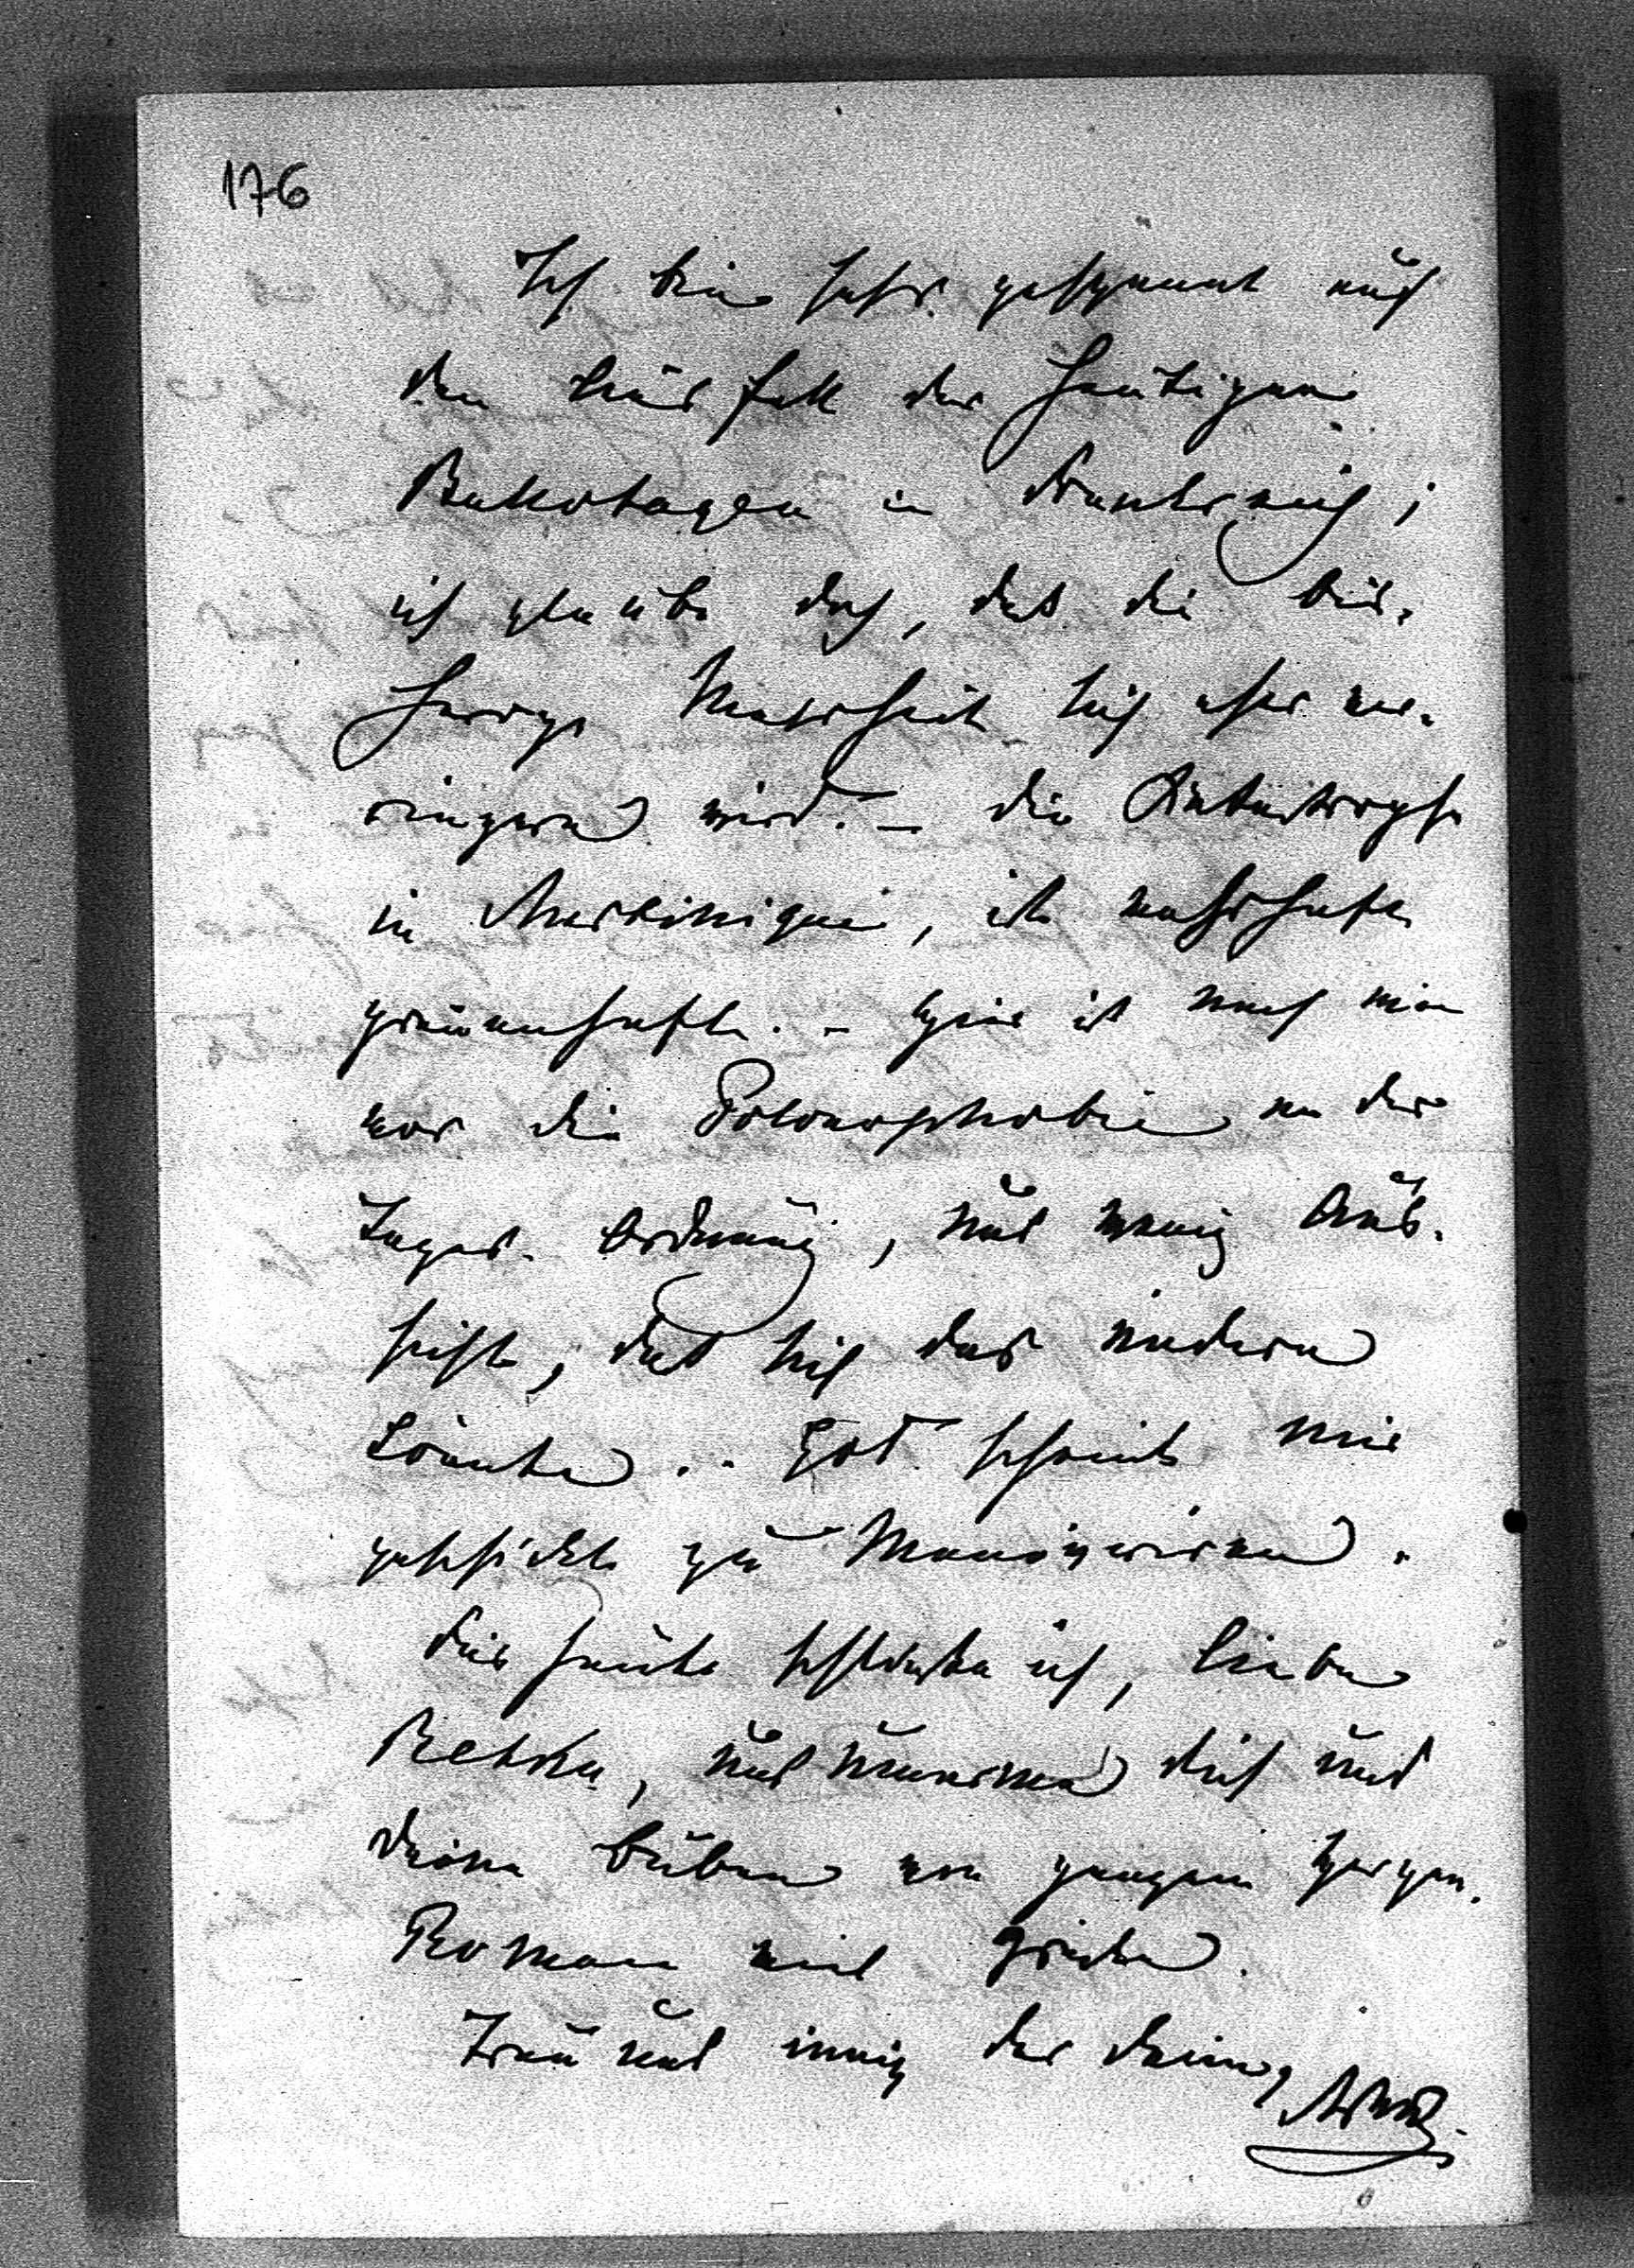 176
Ich bin sehr gespannt auf
den Ausfall der heutigen
Ballotagen in Frankreich;
ich glaube doch, dass die bis-
herige Mehrheit sich eher ver-
ringern wird. – Die Katastrophe
in Martinique, ist wahrhaft
grauenhaft. – Hier ist nach wie
vor die Polonophobie an der
Tages-Ordnung, und wenig Aus-
sicht, dass sich das ändern
könnte. . scheint mir
geschickt zu manövriren.
Für heute schließe ich, liebe
und umarme Dich und
Deine Buben von ganzem Herzen.
Roman mit Grüßen.
Treu und innig der Deine